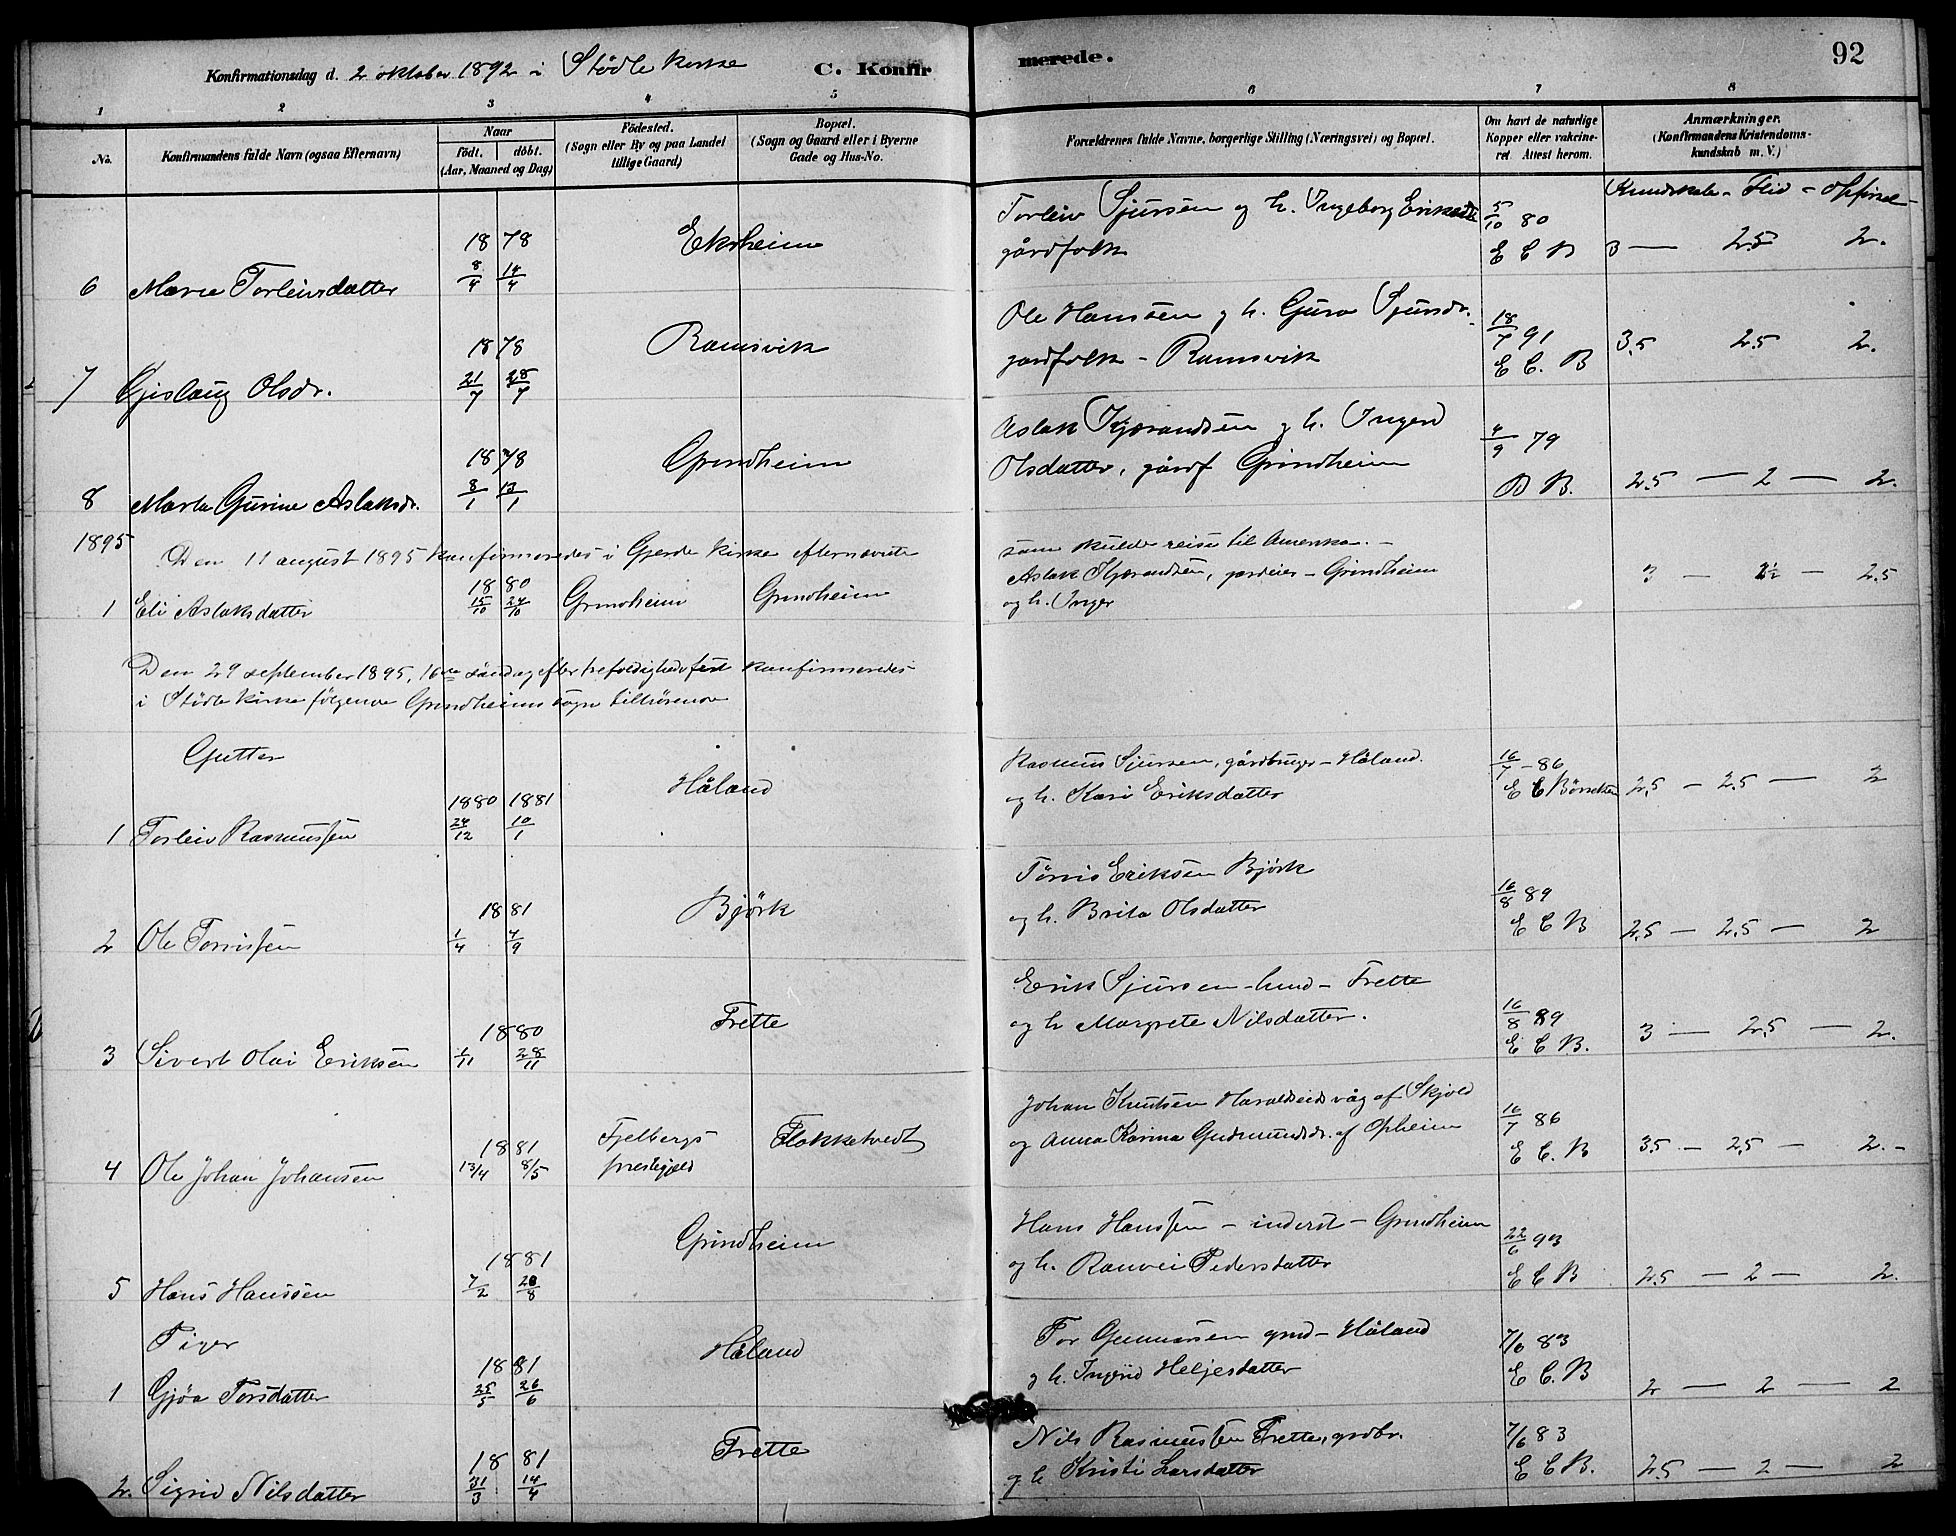 Konfirmationsdag d. 2 oktober 1892 i Stødle kirke C. Konfirmerede. 92
1 2 3 4 5 6 7 8
No. Konfirmandens fulde Navn (ogsaa Efternavn)
Naar født. døbt. (Aar, Maaned og Dag)
Fødested. (Sogn eller By og paa Landet tillige Gaard)
Bopæl. (Sogn og Gaard eller i Byerne Gade og Hus-No.
Forældrenes fulde Navne, borgerlige Stilling (Næringsvei) og Bopæl.
Om havt de naturlige Kopper eller vakcineret Attest herom.
Anmærkninger. (Konfirmandens Kristendomskundskab m. V.)
Kundskab - Flid - Opførsel -
Torleiv Sjursen og h. Ingeborg Eriksdtr 5/10 80
18 78 Eksheim gårdfolk E C B 3 — 2.5 2.
6 Marie Torleivsdatter 8/4 14/4
Ole Hansen og h. Guro Sjursdr. 18/7 91
18 78 Ramsvik gardfolk - Ramsvik E C. B 3.5 2.5 2.
7 Gjislaug Olsdr. 21/7 28/7
Aslak Kjærandsen og h. Ingerd 4/9 79
18 78 Grindheim Olsdatter, gårdf Grindheim B B. 2.5 — 2 — 2.
8 Marta Gurine Aslaksdr. 8/1 13/1
1895
Den 11 august 1895 konfirmeredes i Gjerde kirke efternevnte som skulde reise til Amerika. -
18 80 Aslak Kjærandsen, gardeier - Grindheim 3 — 2½ - 2.5
1 Eli Aslaksdatter 15/10 24/10 Grindheim Grindheim og h. Inger
Den 29 september 1895, 16de søndag efter trefoldighedsfest konfirmeredes
i Stødle kirke følgende Grindheims sogn tilhørende
Gutter
Rasmus Sjursen, gårdbruger - Håland. 16/7 - 86
1880 1881 Håland og h. Kari Eriksdatter E C Børretzen 2.5 - 2.5 — 2
1 Torleiv Rasmussen 24/12 10/1
Tørris Eriksen Bjørk 16/8 89
18 81 Bjørk og h. Brita Olsdatter E C B 2.5 — 2.5 — 2
2 Ole Tørrissen 1/4 4/9
Erik Sjursen - husmd - Frette 16/8 89
18 80 Frette og h Margrete Nilsdatter. E C B. 3 — 2.5 — 2.
3 Sivert Olai Eriksen 1/11 28/11
Johan Knutsen Haraldseidvåg af Skjold 16/7 86
18 81 Fjelbergs prestegjeld Flokketvedt og Anna Karina Gudmundsdr. af Opheim E C. B 3.5 — 2.5 — 2. -
4 Ole Johan Johansen 13/4 8/5
Hans Hanssen - inderst - Grindheim 22/6 93
18 81 Grindheim og h. Ranvei Pedersdatter E C B 2.5 — 2 — 2.
5 Hans Hanssen 7/2 28/8
Piger
Tor Gunnarsen grmd - Håland 7/6 83
18 81 Håland og h. Ingrid Heljesdatter E C. B 2 — 2 — 2
1 Gjøa Torsdatter 25/5 26/6
Nils Rasmussen Frette, grdbr. 7/6 83
18 81 Frette og h Kristi Larsdatter E C B. 2.5 — 2 — 2
2. Sigrid Nilsdatter 31/3 14/4